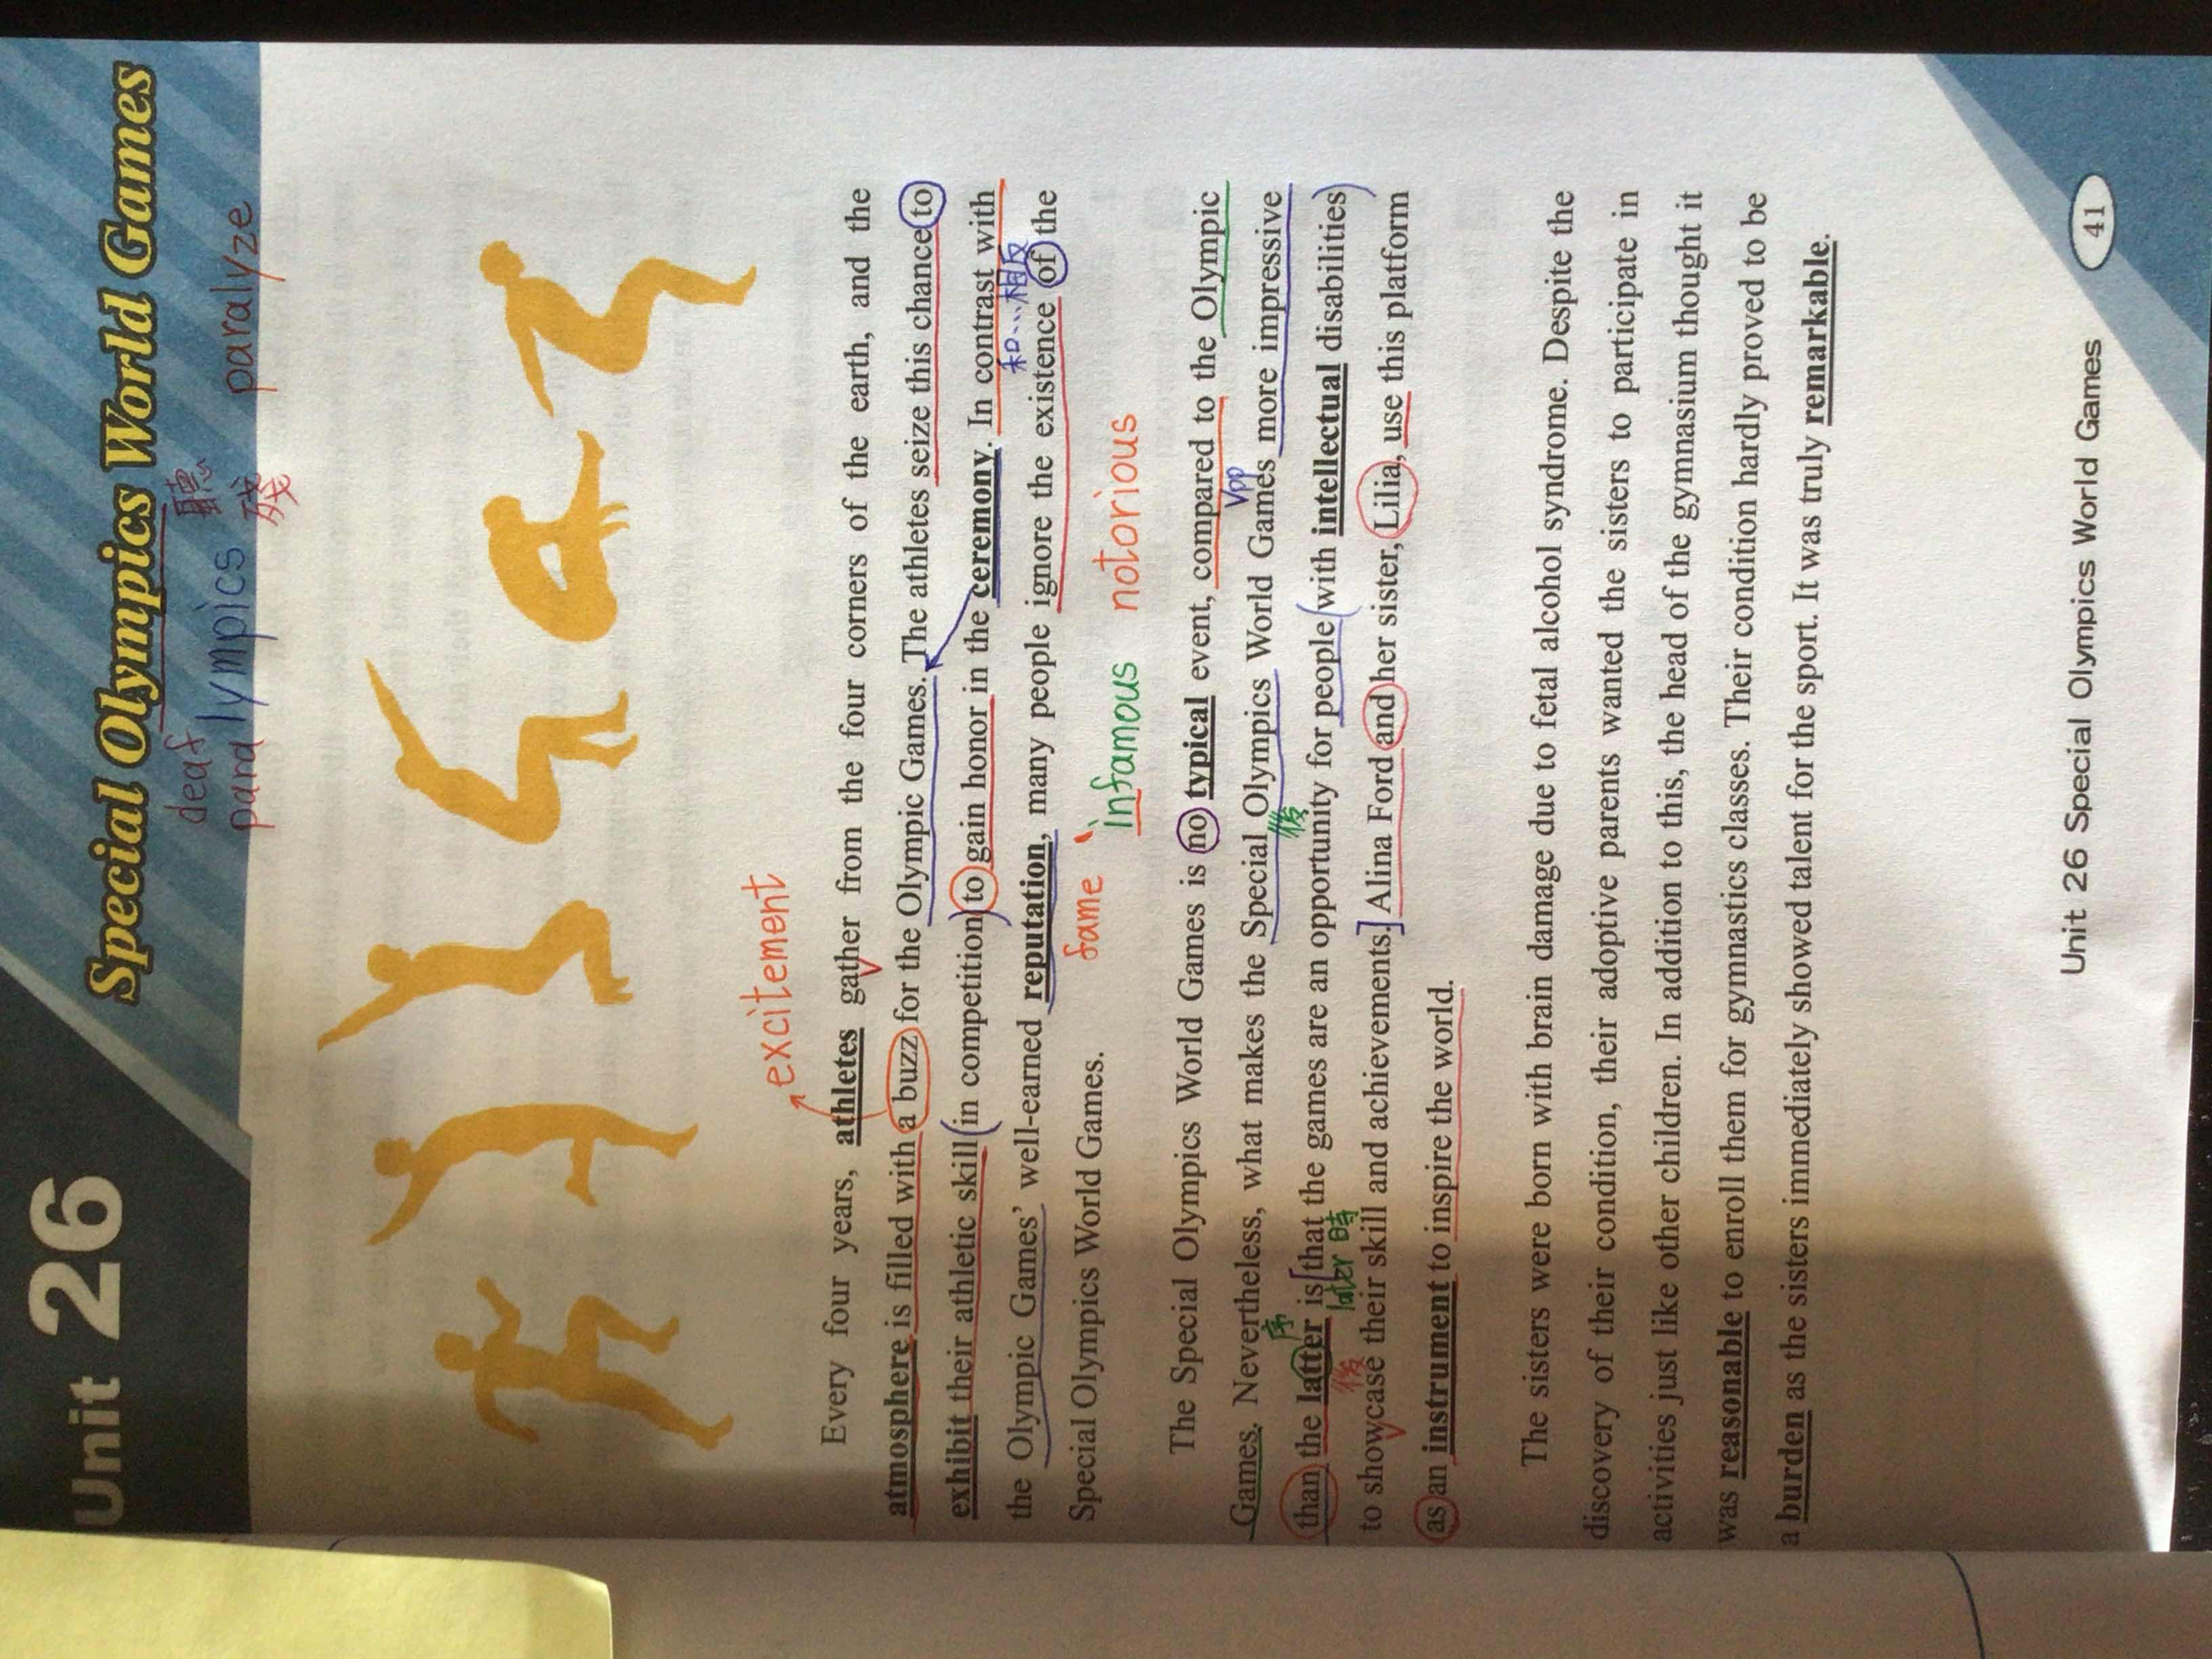 Unit 26
Special Olympics World Games
deaf 聽
paralympics 殘 paralyze
excitement
Every four years, athletes gather from the four corners of the earth, and the
atmosphere is filled with a buzz for the Olympic Games. The athletes seize this chance to
exhibit their athletic skill (in competition) to gain honor in the ceremony. In contrast with
和...相反
the Olympic Games' well-earned reputation, many people ignore the existence of the
Special Olympics World Games.
fame infamous notorious
The Special Olympics World Games is no typical event, compared to the Olympic
Vpp
Games. Nevertheless, what makes the Special Olympics World Games more impressive
序 後
than the latter is [that the games are an opportunity for people (with intellectual disabilities)
後 later 時
to showcase their skill and achievements.] Alina Ford and her sister, Lilia, use this platform
as an instrument to inspire the world.
The sisters were born with brain damage due to fetal alcohol syndrome. Despite the
discovery of their condition, their adoptive parents wanted the sisters to participate in
activities just like other children. In addition to this, the head of the gymnasium thought it
was reasonable to enroll them for gymnastics classes. Their condition hardly proved to be
a burden as the sisters immediately showed talent for the sport. It was truly remarkable.
Unit 26 Special Olympics World Games 41